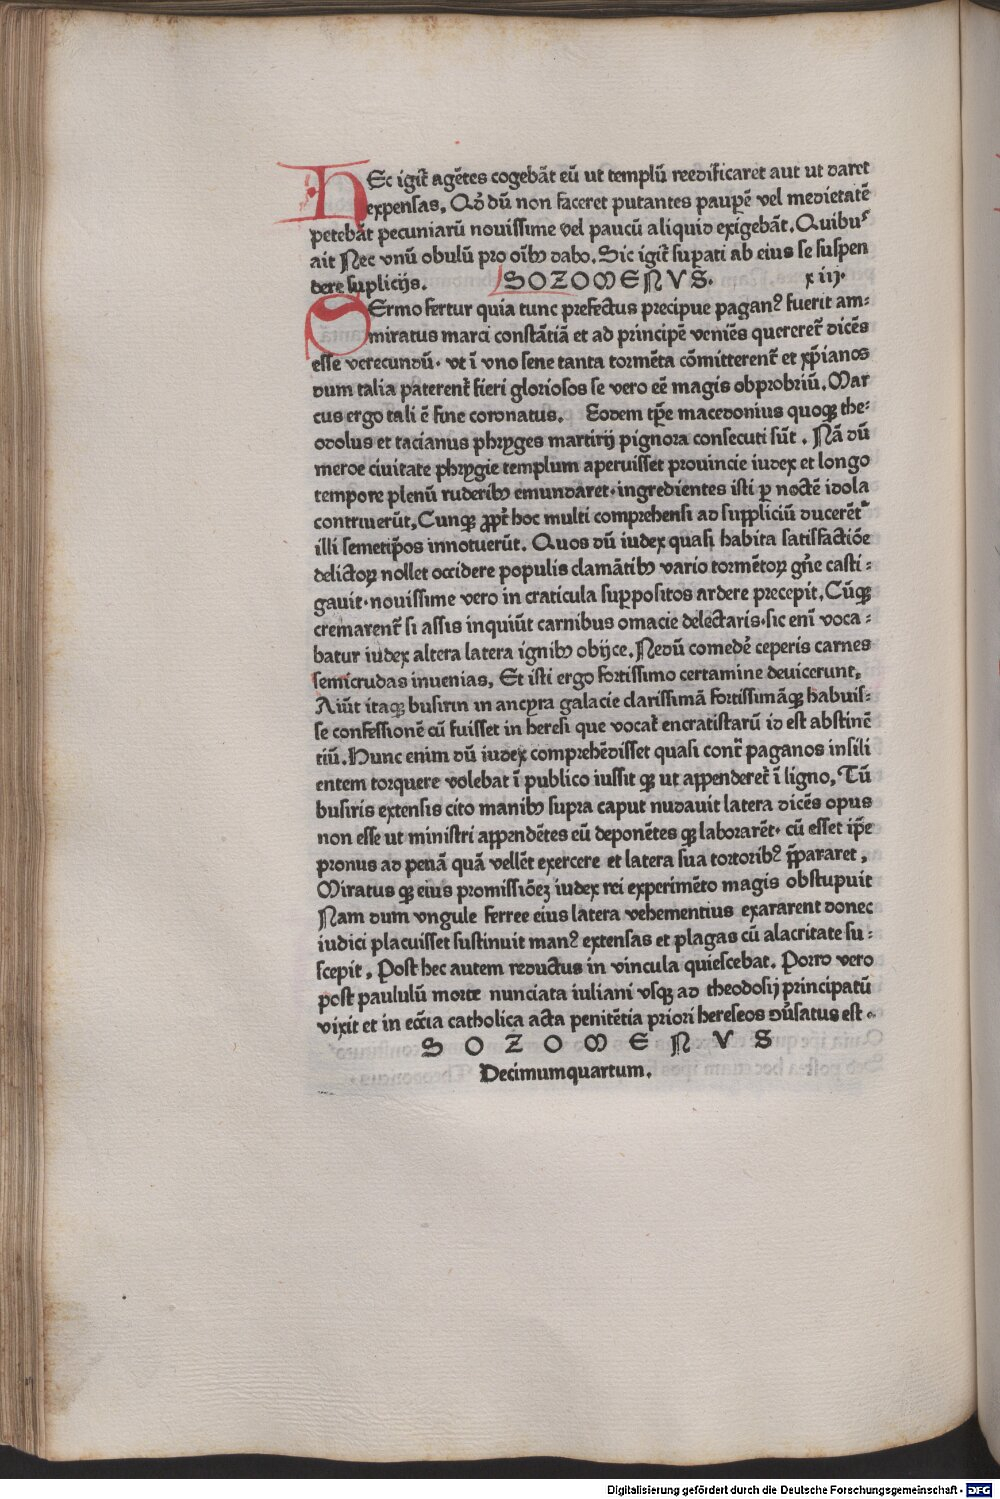 HEc igit̃ agẽtes cogebãt eũ ut templũ reedificaret aut ut daret
expensas, Qd̕ dũ non faceret putantes paupẽ vel medietatẽ
petebãt pecuniarũ novissime vel paucũ aliquid exigebãt. Quibuˢ
ait Nec vnũ obulũ pro oĩbꝫ dabo. Sic igit̃ suꝑati ab eius se suspen
dere suplicijs. SOZOMENVS. xiij.
SErmo fertur quia tunc prefectus precipue paganꝰ fuerit am⸗
miratus marci constãtiã et ad principẽ veniẽs quereret̃ dicẽs
esse verecundũ. vt ĩ vno sene tanta tormẽta cõmitterent̃ et xp̃ianos
dum talia paterent̃ fieri gloriosos se vero eẽ magis obprobriũ. Mar
cus ergo tali ẽ fine coronatus. Eodem tp̃e macedonius quoqꝫ the⸗
odolus et tacianus phryges martirij pignora consecuti sũt. Nã dũ
meroe civitate phrygie templum aperuisset provincie iudex et longo
tempore plenũ ruderibꝫ emundaret. ingredientes isti ꝑ noctẽ idola
contriverũt, Cunqꝫ ꝓpt̕ hoc multi comprehensi ad suppliciũ ducerẽt̃
illi semetip̃os innotuerũt. Quos dũ iudex quasi habita satisfactiõe
delictoꝝ nollet occidere populis clamãtibꝫ vario tormẽtoꝝ gñe casti⸗
gavit. novissime vero in craticula suppositos ardere precepit, Cũqꝫ
cremarent̃ si assis inquiũt carnibus omacie delectaris. sic enĩ voca⸗
batur iudex altera latera ignibꝫ obijce. Nedũ comedẽ ceperis carnes
semicrudas invenias, Et isti ergo fortissimo certamine devicerunt,
Aiũt itaqꝫ busirin in ancyra galacie clarissimã fortissimãqꝫ habuis⸗
se confessionẽ cũ fuisset in heresi que vocat̃ encratistarũ id est abstinẽ
tiũ. Hunc enim dũ iudex comprehẽdisset quasi contᷓ paganos insili
entem torquere volebat ĩ publico iussit qꝫ ut appenderet̃ ĩ ligno, Tũ
busiris extensis cito manibꝫ supra caput nudavit latera dicẽs opus
non esse ut ministri appendẽtes eũ deponẽtes qꝫ laborarẽt. cũ esset ip̃e
pronus ad penã quã vellẽt exercere et latera sua tortoribꝰ p̃pararet,
Miratus qꝫ eius promissiõeꝫ iudex rei experimẽto magis obstupuit
Nam dum vngule ferree eius latera vehementius exararent donec
iudici placuisset sustinuit manꝰ extensas et plagas cũ alacritate su⸗
scepit, Post hec autem reductus in vincula quiescebat. Porro vero
post paululũ morte nunciata iuliani vsqꝫ ad theodosij principatũ
vixit et in ecc̃ia catholica acta penitẽtia priori hereseos dũsatus est.
SOZOMENVS
Decimumquartum.
Digitalisierung gefördert durch die Deutsche Forschungsgemeinschaft - DFG